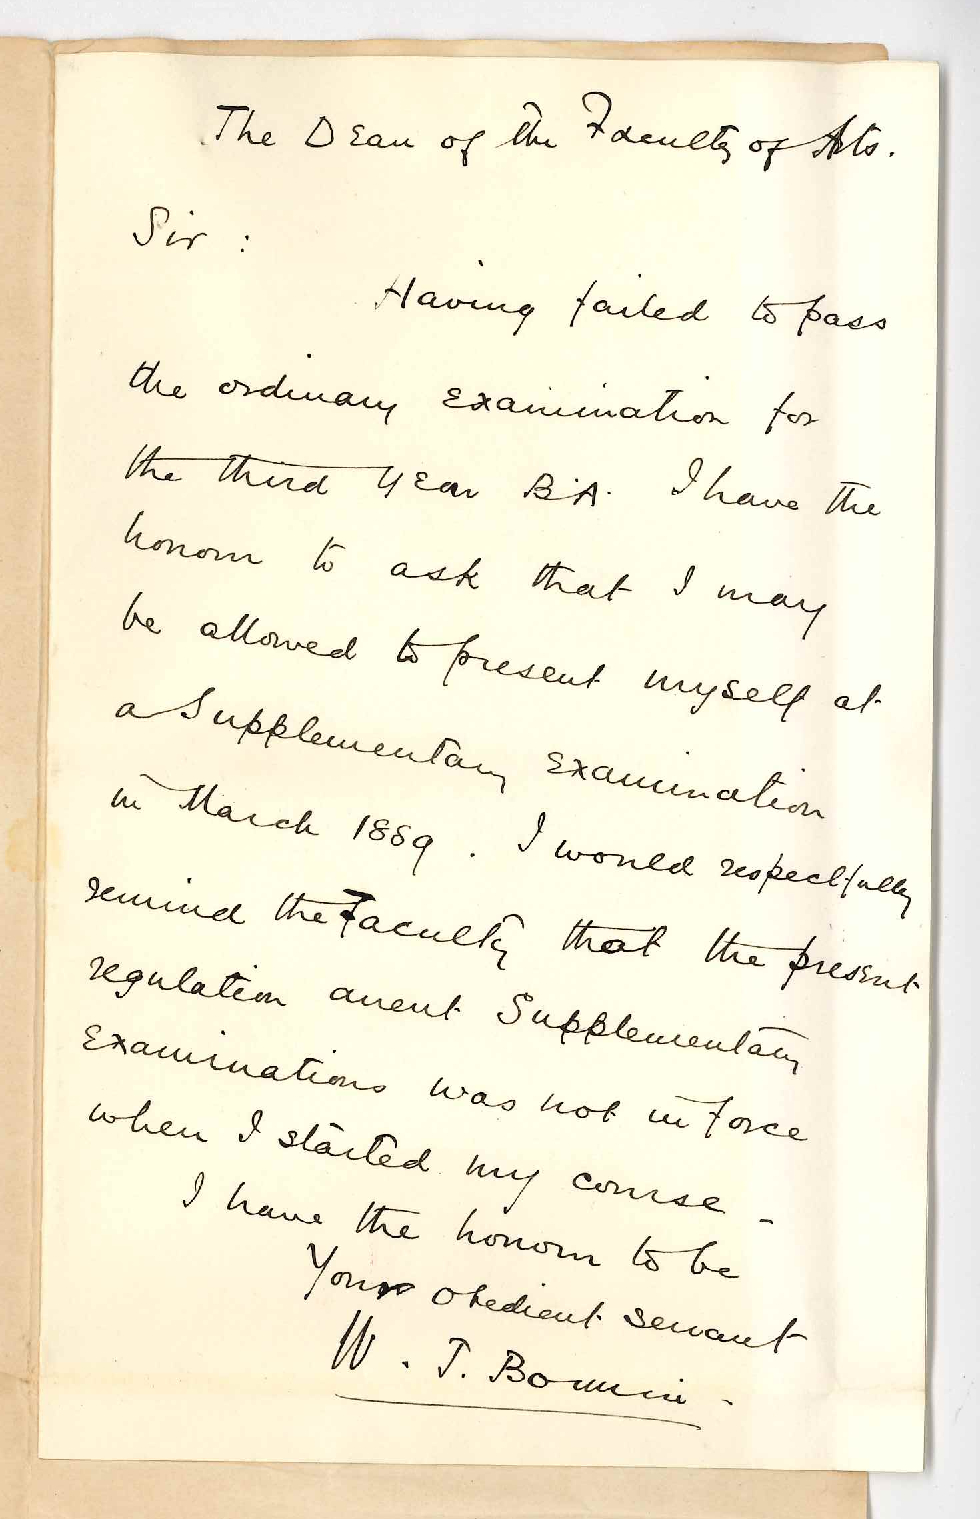 The Dean of the Faculty of Arts.
Sir :
Having failed to pass
the ordinary Examination for
the third year B.A. I have the
honour to ask that I may
be allowed to present myself at
a Supplementary Examination
in March 1889. I would respectfully
remind the Faculty that the present
regulation anent Supplementary
Examinations was not in force
when I started my course -
I have the honour to be
Your obedient servant
W. J.